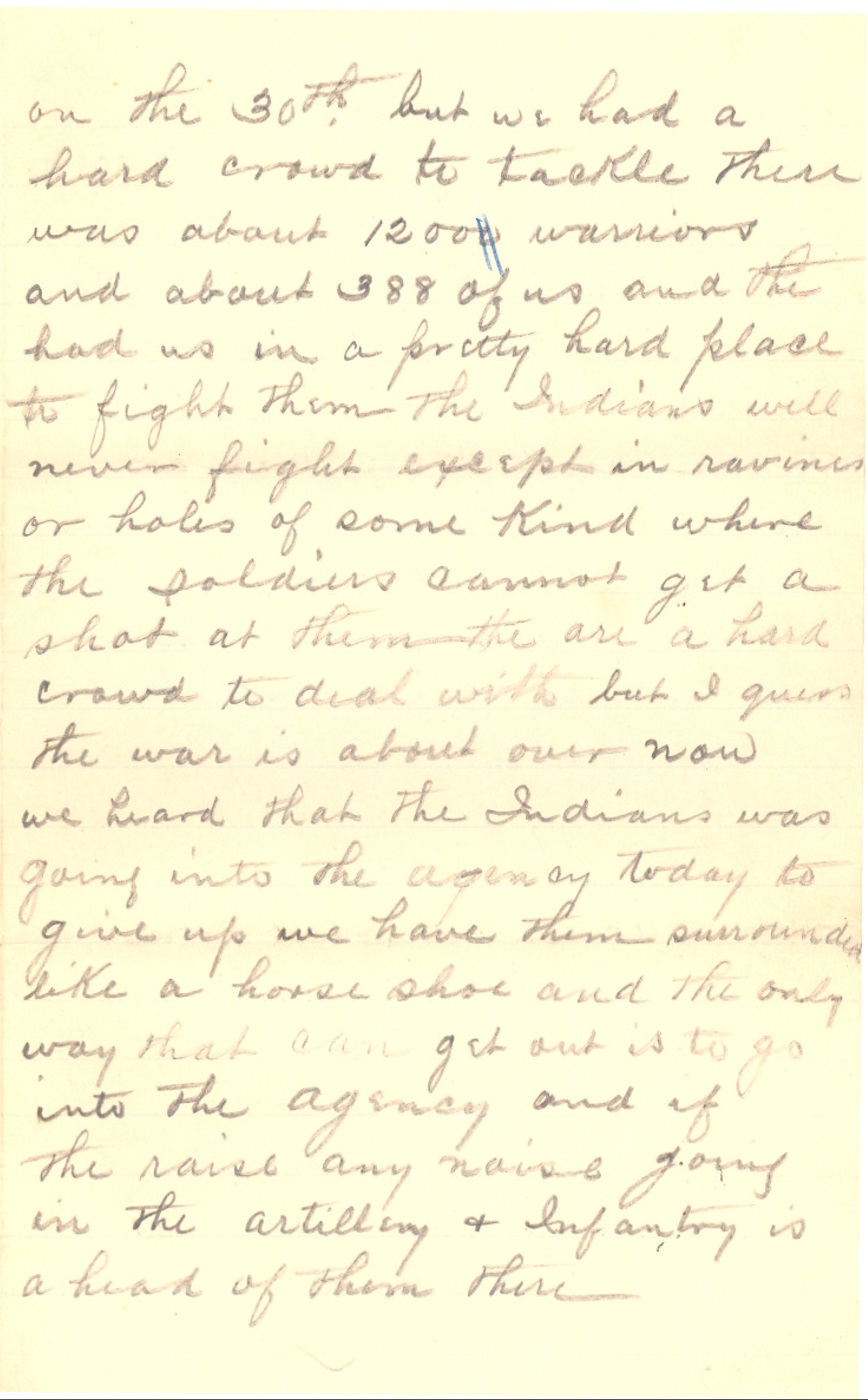 on the 30th. but we had a
hard crowd to tackle there
was about 12000 warriors
and about 388 of us and the
had us in a pretty hard place
to fight them the Indians will
never fight except in ravines
or holes of some Kind where
the soldiers cannot get a
shot at them the are a hard
crowd to deal with but I guess
the war is about over now
we heard that the Indians was
going into the agency today to
give up we have them surrounded
like a horse shoe and the only
way that can get out is to go
into the agency and if
the raise any noise going
in the artillery + Infantry is
a head of them there